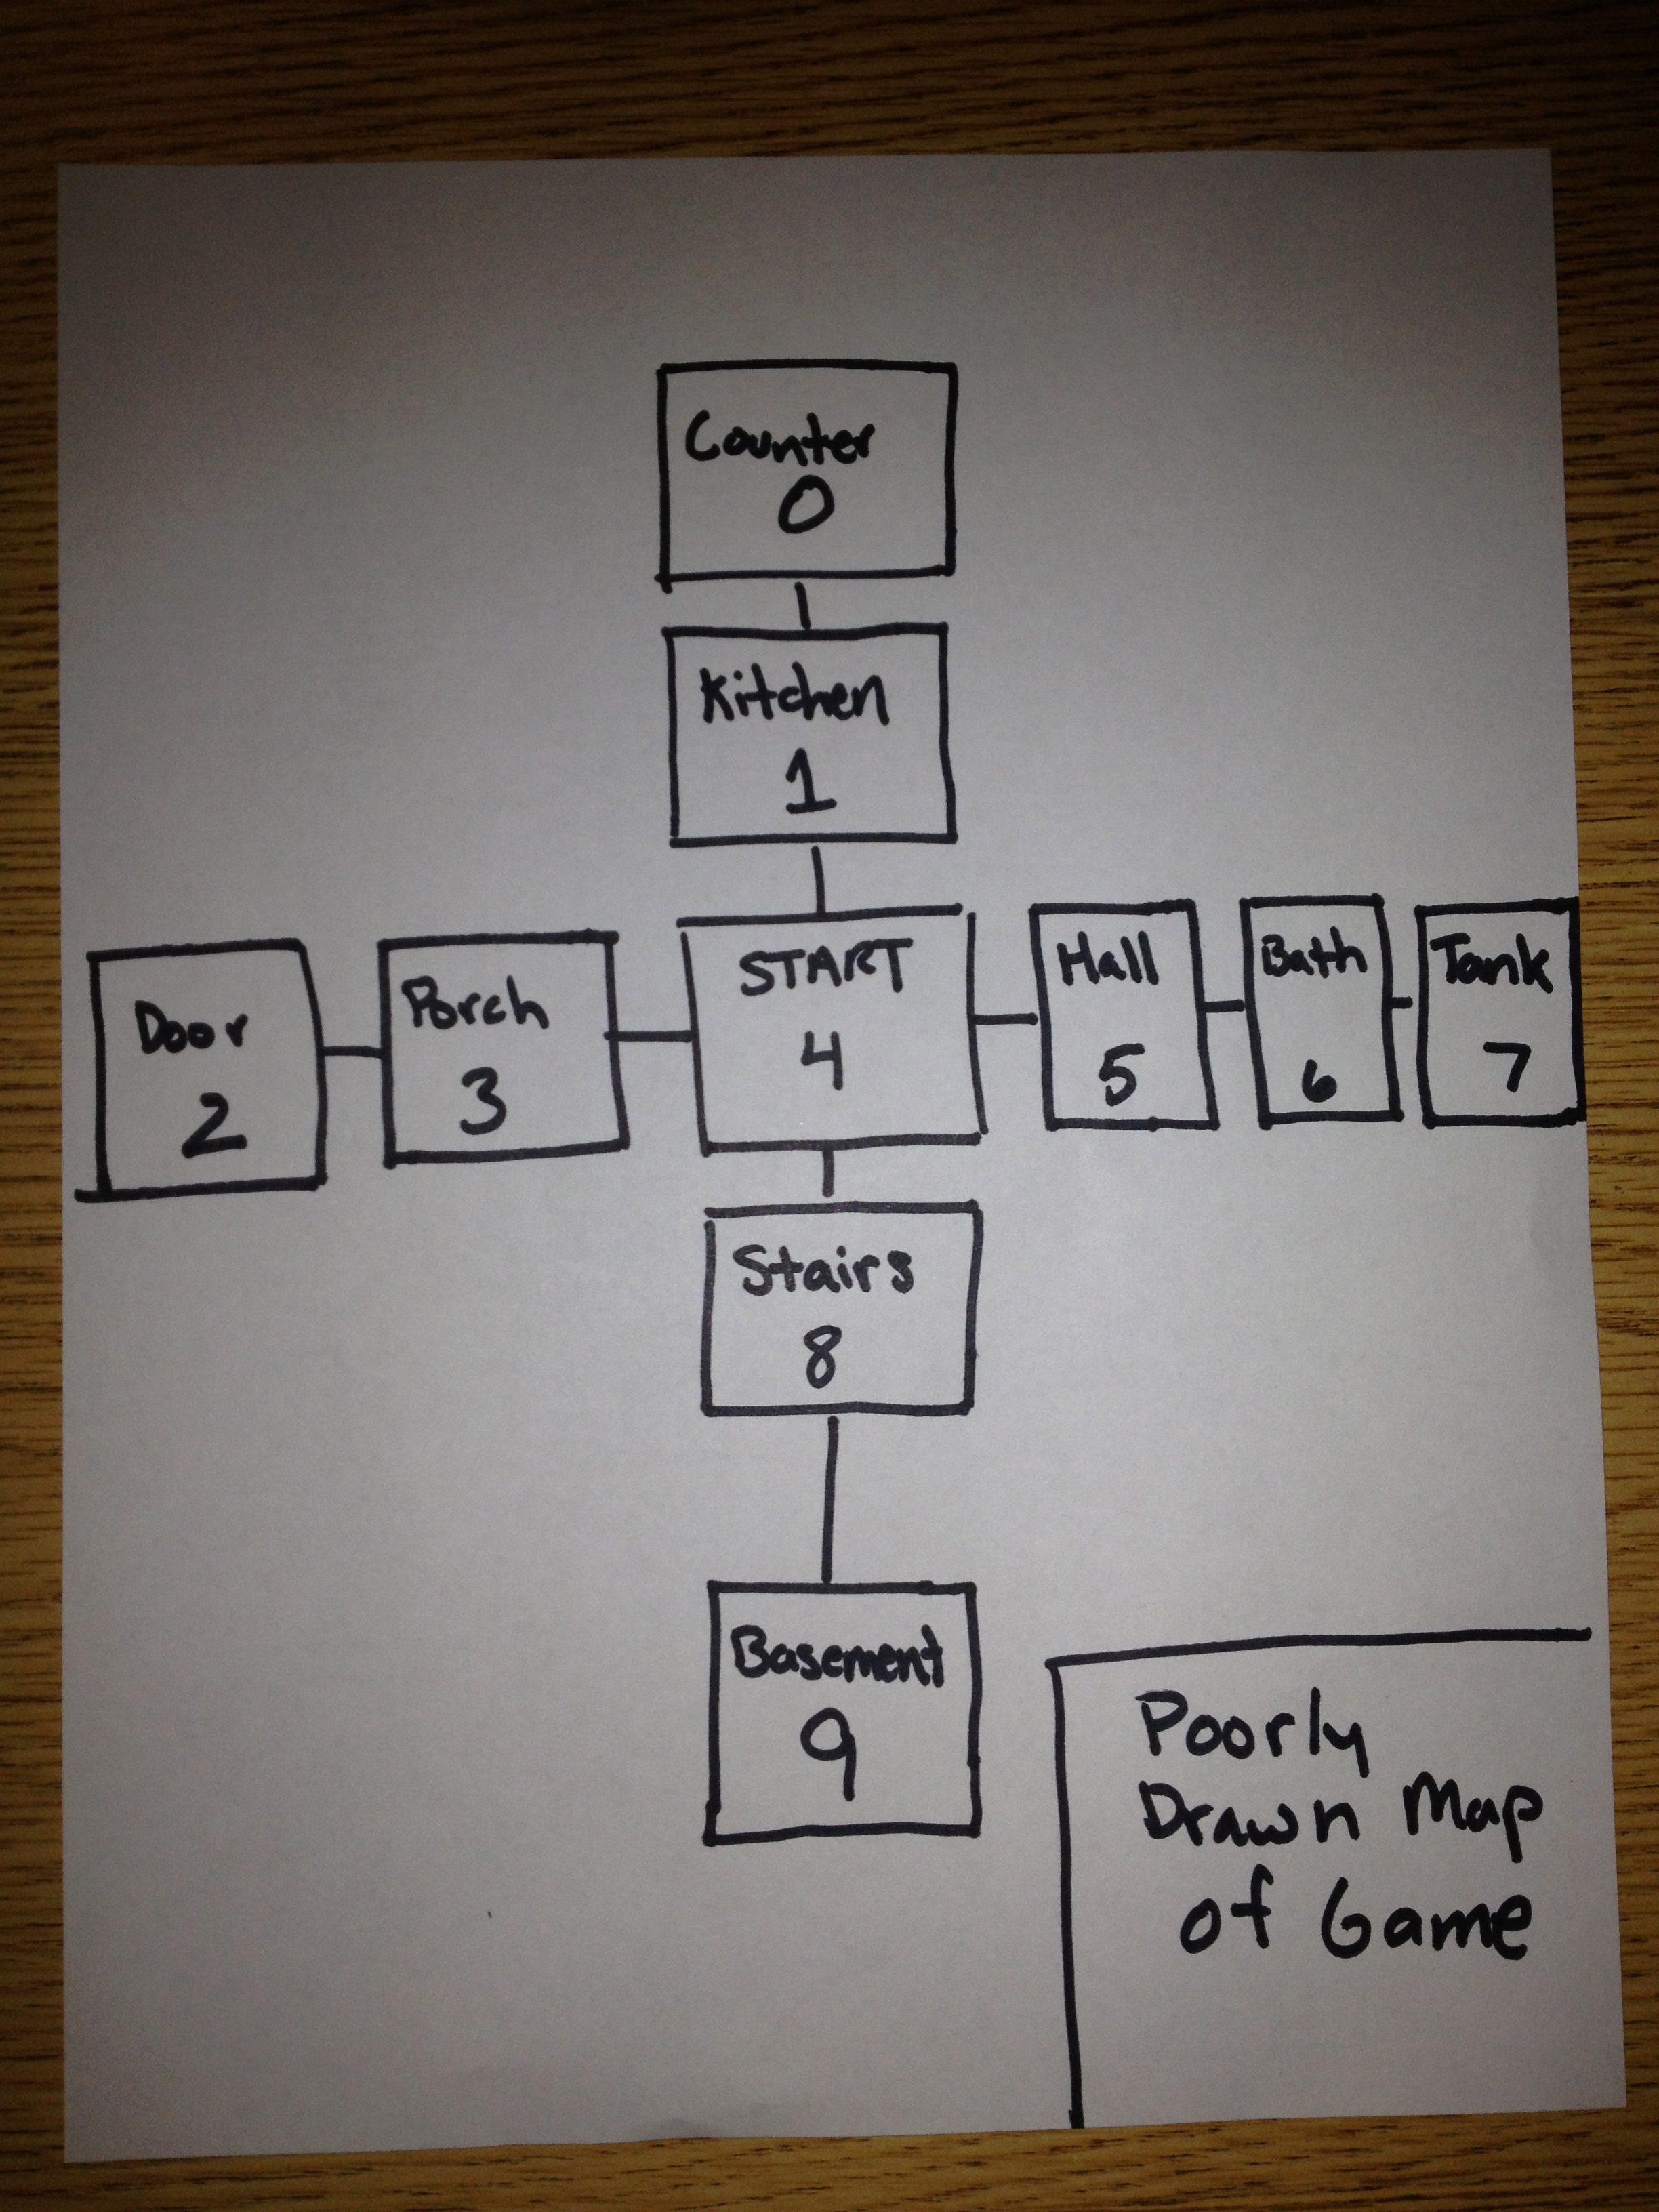 Counter
0
Kitchen
1
Door
2
Porch
3
START
4
Hall
5
Bath
6
Tank
7
Stairs
8
Basement
9
Poorly
Drawn Map
of Game